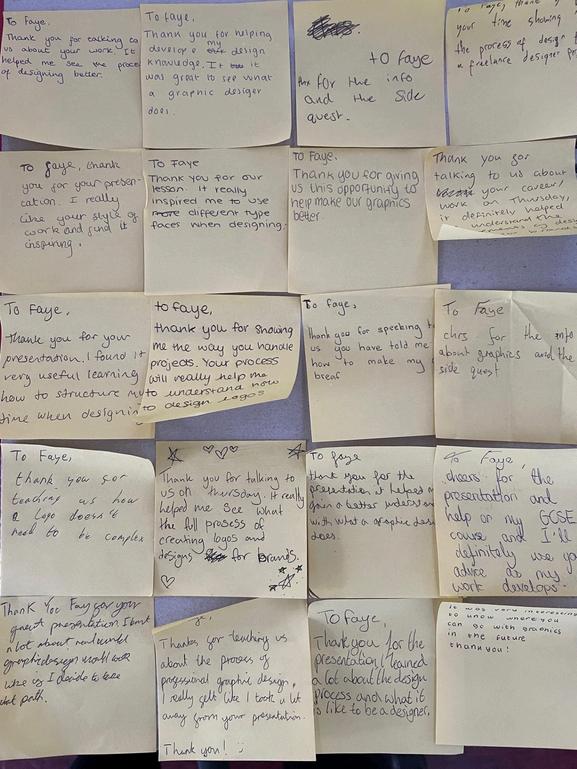 To Faye.
Thank you for talking to
us about your work. It
helped me see the proce
of designing better.
To Faye,
Thank you for helping
develope my design
knowledge. It it
was great to see what
a graphic desiger
does.
to Faye
for the info
and the side
quest.
your time showing
the process of design
a freelance designer
To faye, thank
you for your presen-
tation. I really
like your style of
work and find it
inspiring.
To Faye
Thank you for our
lesson. It really
inspired me to use
more different type
faces when designing.
To Faye.
Thank you for giving
us this opportunity to
help make our graphics
better.
Thank you for
talking to us about
your career/
work on Thursday,
it definitely helped
understand the
To Faye,
Thank you for your
presentation. I found it
very useful learning
how to structure m
time when designin
to faye,
thank you for showing
me the way you handle
projects. Your process
will really help me
to understand how
to design logos
To faye,
thank you for speeking t
us you have told me
how to make my
breaf
To Faye
chrs for the info
about graphics and the
side quest
To Faye,
thank you for
teaching us how
a logo doesn't
need to be complex
Thank you for talking to
us on thursday. It really
helped me see what
the full prosess of
creating logos and
designs for brands.
To faye
thank you for the
presentation, it helped m
gain a better understan
with what a graphic des
does.
To Faye,
cheers for the
presentation and
help on my GCSE
course and I'll
definitely use yo
advice as my
work develops.
Thank You Fay for your
guest presentation I learnt
a lot about real world
graphic design would work
like as I decide to take
that path.
Thanks for teaching us
about the proses of
professional graphic design,
I really felt like I took a lot
away from your presentation.
Thank you! :)
To Faye,
Thank you for the
presentation I learned
a lot about the design
process and what it
is like to be a designer.
it was very interesting
to know where you
can go with graphics
in the future
thank you!